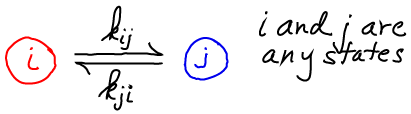 k_ij
i
j
k_ji
i and j are
any states